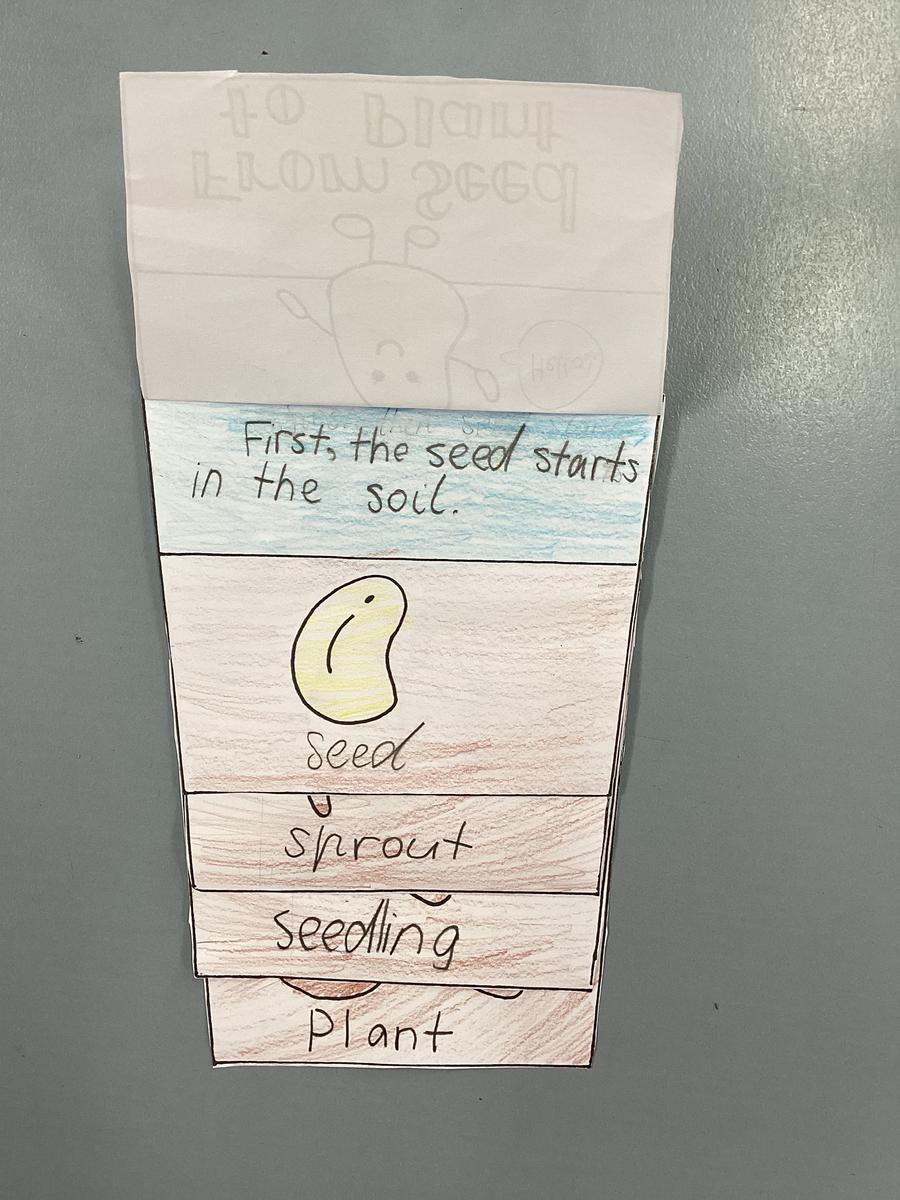 From Seed
to Plant
Hello!
First, the seed starts
in the soil.
seed
sprout
seedling
Plant